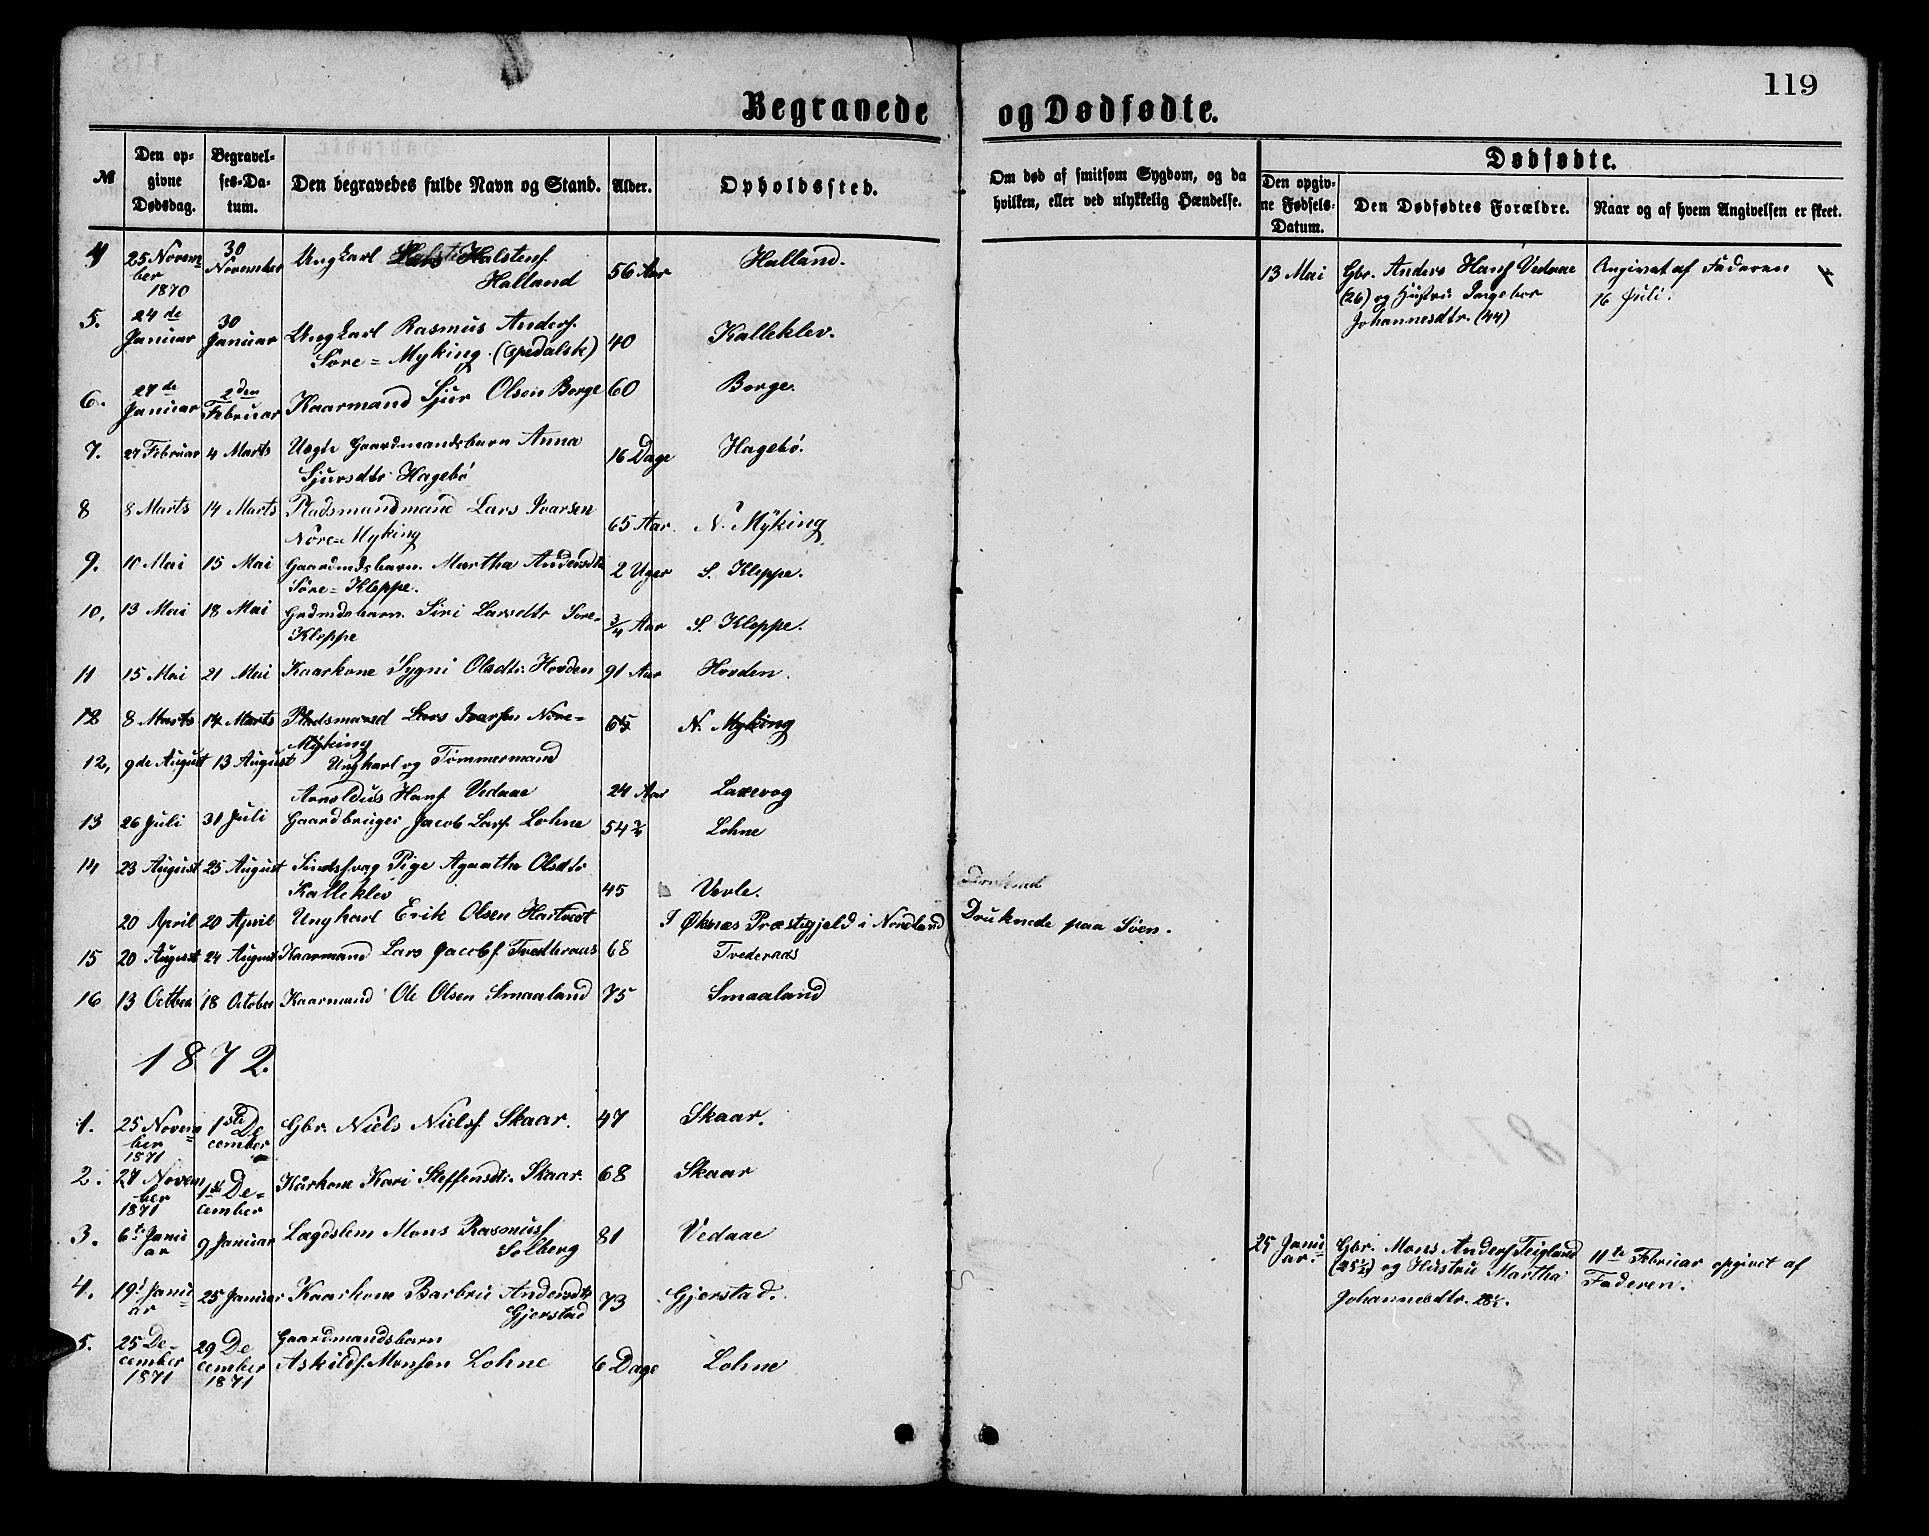 119
Begravede og Dødfødte.
№
Den opgivne Dødsdag.
Begravelses-Datum.
Den begravedes fulde Navn og Stand.
Alder.
Opholdssted.
Om død af smitsom Sygdom, og da hvilken, eller ved ulykkelig Hændelse.
Dødfødte.
Den opgivne Fødsels-Datum.
Den Dødfødtes Forældre.
Naar og af hvem Angivelsen er skeet.
4 25 November 1870 30 November Ungkarl Halstenf Halland 56 Aar Halland.
13 Mai Gbr. Anders Hansf Vedaae (26) og Hustru Ingebor Johannesdtr. (44) Angivet af Faderen 16 Juli.
5. 24de Januar 30 Januar Ungkarl Rasmus Andersf. Søre=Myking. (spedalsk) 40 Kalleklev.
6. 27de Januar 2den Februar Kaarmand Sjur Olsen Borge 60 Borge.
7. 27 Februar 4 Marts Uegte Gaardmandsbarn Anna Sjursdtr Hagebø 16 Dage Hagebø.
8 8 Marts 14 Marts Pladsmandmand Lars Ivarsen Nøre=Myking 65 Aar N. Myking
9. 10 Mai 15 Mai Gaardmdsbarn. Martha Andersdtr Søre=Kleppe. 2 Uger S. Kleppe.
10, 13 Mai 18 Mai Grdmdsbarn. Siri Larsdtr Søre=Kleppe 3/4 Aar S. Kleppe.
11 15 Mai 21 Mai Kaarkone Sygni Olsdtr. Hovden 91 Aar Hovden.
12 8 Marts 14 Marts Pladsmand Lars Ivarsen Nøre=Myking 65 N. Myking
12, 9de August 13 August Ungkarl og Tømmermand Arnoldus Hansf Vedaae 24 Aar Laxevog
13 26 Juli 31 Juli Gaardbruger Jacob Larsf. Lohne 54 Lohne
14 23 August 25 August Sindssvag Pige Agaatha Olsdtr Kalleklev 45 Verle.
20 April 20 April Ungkarl Erik Olsen Hartveit I Øksnæs Præstegjeld i Nordland Druknede paa Søen.
15 20 August 24 August Kaarmand Lars Jacobsf. Tvedteraas 68 Tvederaas
16 13 Octber 18 October Kaarmand Ole Olsen Smaaland 75 Smaaland
1872.
1. 25 November 1871 1ste December Gbr. Niels Nielsf Skaar. 47 Skaar.
2. 27 November 1871 1ste December Kårkone Kari Steffensdtr. Skaar. 68 Skaar
3. 6te Januar 9 Januar Lægdslem Mons Rasmusf Solberg 81 Vedaae
25 Januar. Gbr. Mons Andersf Teigland (25½) og Hustru Martha Johannesdtr. 28½. 11te Februar opgivet af Faderen.
4. 19 Januar 25 Januar Kaarkone Barbru Andersdtr Gjerstad 73 Gjerstad.
5. 25 December 1871 29 December 1871 Gaardmandsbarn Askildsf. Monsen Lohne 6 Dage Lohne